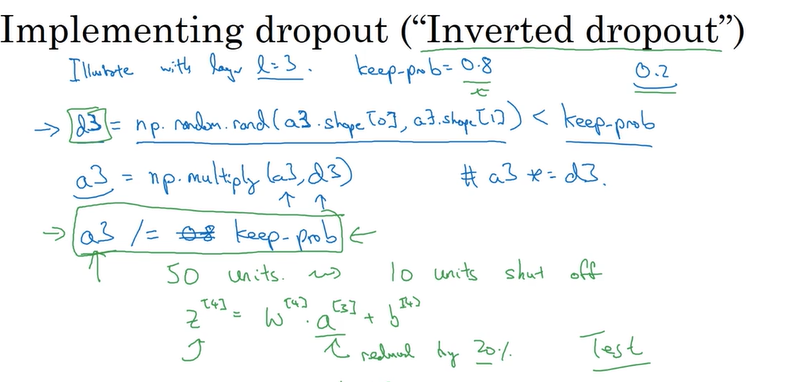 Implementing dropout (“Inverted dropout”)
Illustrate with layer l=3. keep-prob = 0.8 0.2
→ d3 = np.random.rand(a3.shape[0], a3.shape[1]) < keep-prob
a3 = np.multiply(a3, d3) # a3 *= d3.
→ a3 /= 0.8 keep-prob ←
50 units. ⇝ 10 units shut off
z^[4] = W^[4] · a^[3] + b^[4]
reduced by 20%. Test